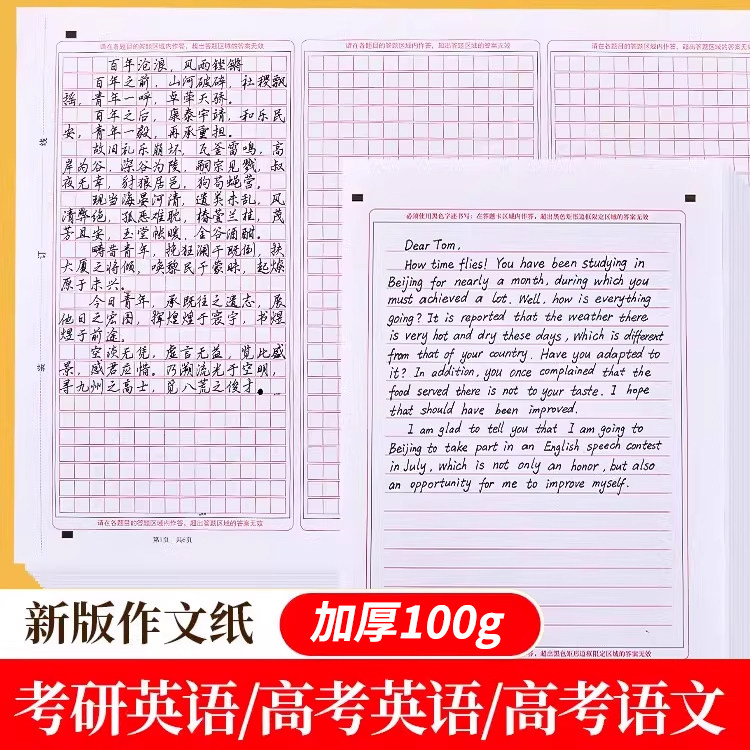 请在各题目的答题区域内作答，超出答题区域的答案无效
请在各题目的答题区域内作答，超出答题区域的答案无效
请在各题目的答题区域内作答，超出答题区域的答案无效
百年沧浪，风雨铿锵
百年之前，山河破碎，社稷飘
摇，青年一呼，卓荦天骄。
百年之后，寰泰宇靖，和乐民
安，青年一毅，再承重担。
故旧礼乐崩坏，瓦釜雷鸣，高
岸为谷，深谷为陵，嗣宗见戮，叔
夜无幸，豺狼居邑，狗苟蝇营。
现当海晏河清，遗英未乱，风
清弊绝，狐恶难肥，椿萱兰桂，茂
芳且安，玉堂祛暖，金谷酒酣。
畴昔青年，挽狂澜于既倒，扶
大厦之将倾，唤黎民于蒙昧，起燎
原于未兴。
今日青年，承既往之遗志，展
他日之宏图，辉煌煌于寰宇，书煜
煜于前途。
空谈无凭，虚言无益，览此盛
景，感君应惜。乃溯流光于空明，
寻九州之高士，觅八荒之俊才。
请在各题目的答题区域内作答，超出答题区域的答案无效
第1页 共6页
线
订
装
必须使用黑色字迹书写；在答题卡区域内作答，超出黑色矩形边框限定区域的答案无效
Dear Tom,
How time flies! You have been studying in
Beijing for nearly a month, during which you
must achieved a lot. Well, how is everything
going? It is reported that the weather there
is very hot and dry these days, which is different
from that of your country. Have you adapted to
it? In addition, you once complained that the
food served there is not to your taste. I hope
that should have been improved.
I am glad to tell you that I am going to
Beijing to take part in an English speech contest
in July, which is not only an honor, but also
an opportunity for me to improve myself.
作答，超出黑色矩形边框限定区域的答案无效
新版作文纸
加厚100g
考研英语/高考英语/高考语文